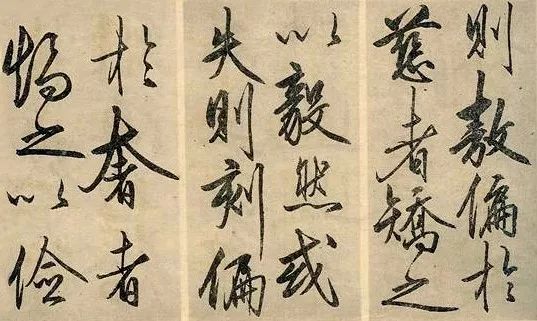 則敖偏於
慈者矯之
以毅然或
失則刻偏
於奢者
矯之以儉